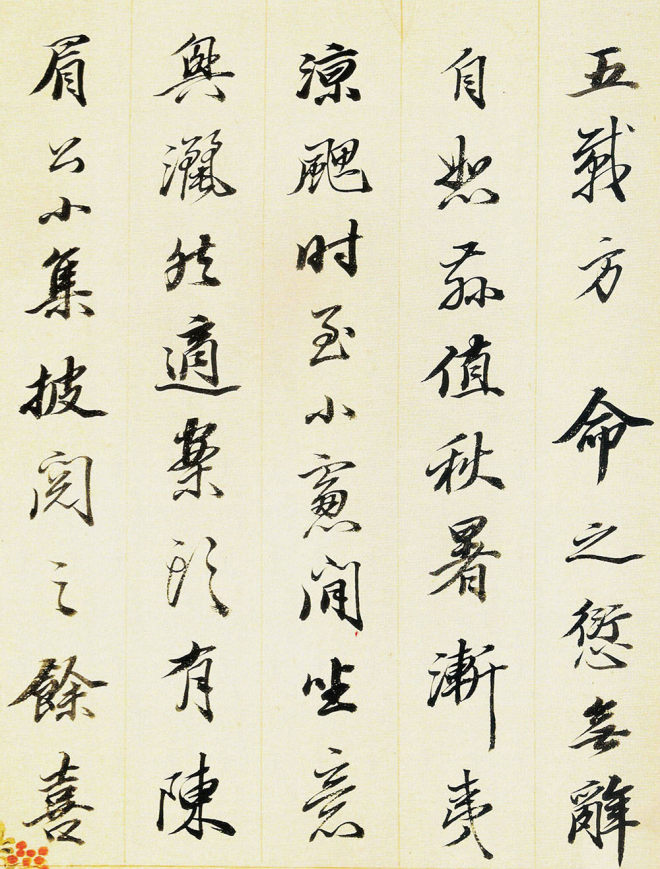 五載方命之愆無辭
自恕茲值秋暑漸夷
涼颸时至小窓閒坐意
興灑然適案頭有陳
眉公小集披閱之餘喜